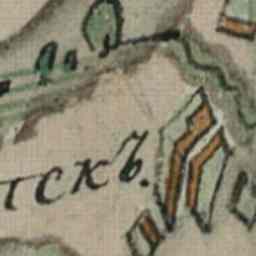 тскъ.